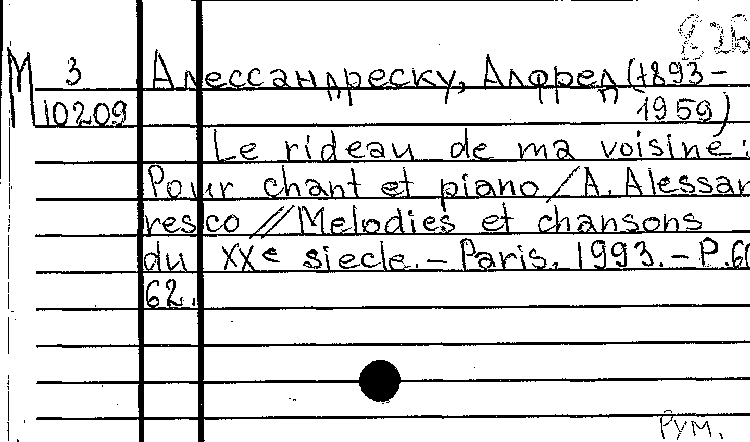 826
М 3 Алессандреску, Алфред (1893-
10209 1959)
Le rideau de ma voisine:
Pour chant et piano / A. Alessan
resco // Melodies et chansons
du XXe siecle. - Paris, 1993. - P.60
62.
Рум.